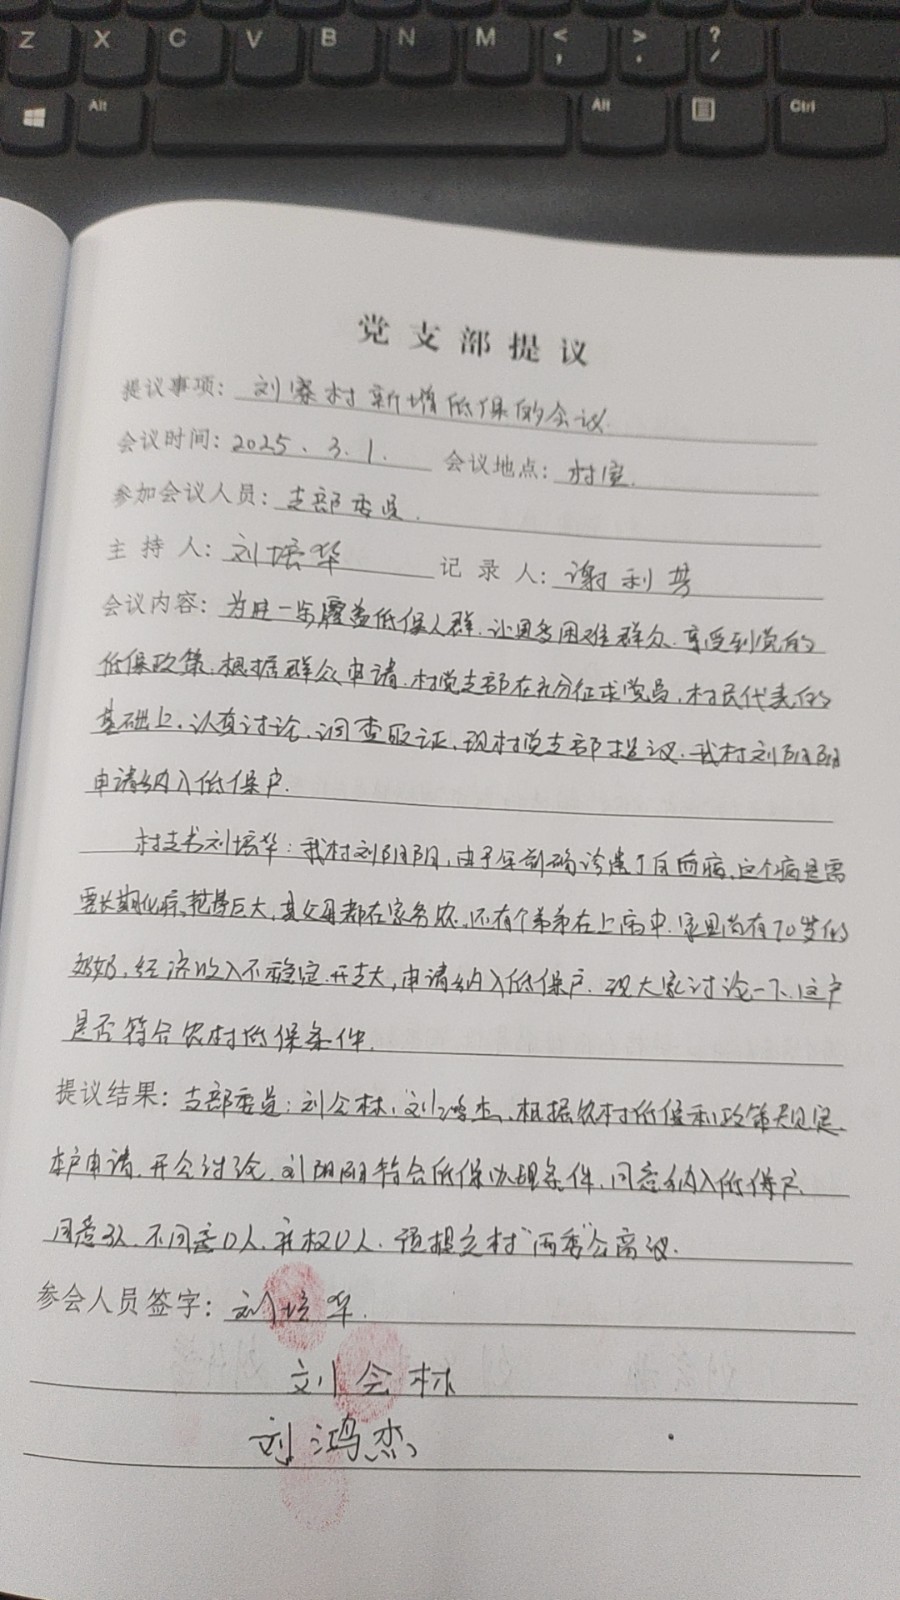 Z X C V B N M < , > . ? /
Alt Alt Ctrl
党支部提议
提议事项: 刘寨村新增低保的会议.
会议时间: 2025.3.1. 会议地点: 村室.
参加会议人员: 支部委员.
主持人: 刘培华 记录人: 谢利芳
会议内容: 为进一步覆盖低保人群.让更多困难群众.享受到党的
低保政策.根据群众申请.村党支部在充分征求党员.村民代表的
基础上.认真讨论.调查取证.现村党支部提议.我村刘阴阴
申请纳入低保户.
村支书刘培华:我村刘阴阴,由于年前确诊患了白血病.这个病是需
要长期化疗,花费巨大,其父母都在家务农.还有个弟弟在上高中.家里尚有70岁的
奶奶.经济收入不稳定.开支大,申请纳入低保户.现大家讨论一下.这户
是否符合农村低保条件.
提议结果: 支部委员:刘会林,刘鸿杰.根据农村低保政策规定.
本户申请.开会讨论.刘阴阴符合低保办理条件.同意纳入低保户.
同意3人.不同意0人.弃权0人.预提交村"两委"会商议.
参会人员签字: 刘培华.
刘会林
刘鸿杰